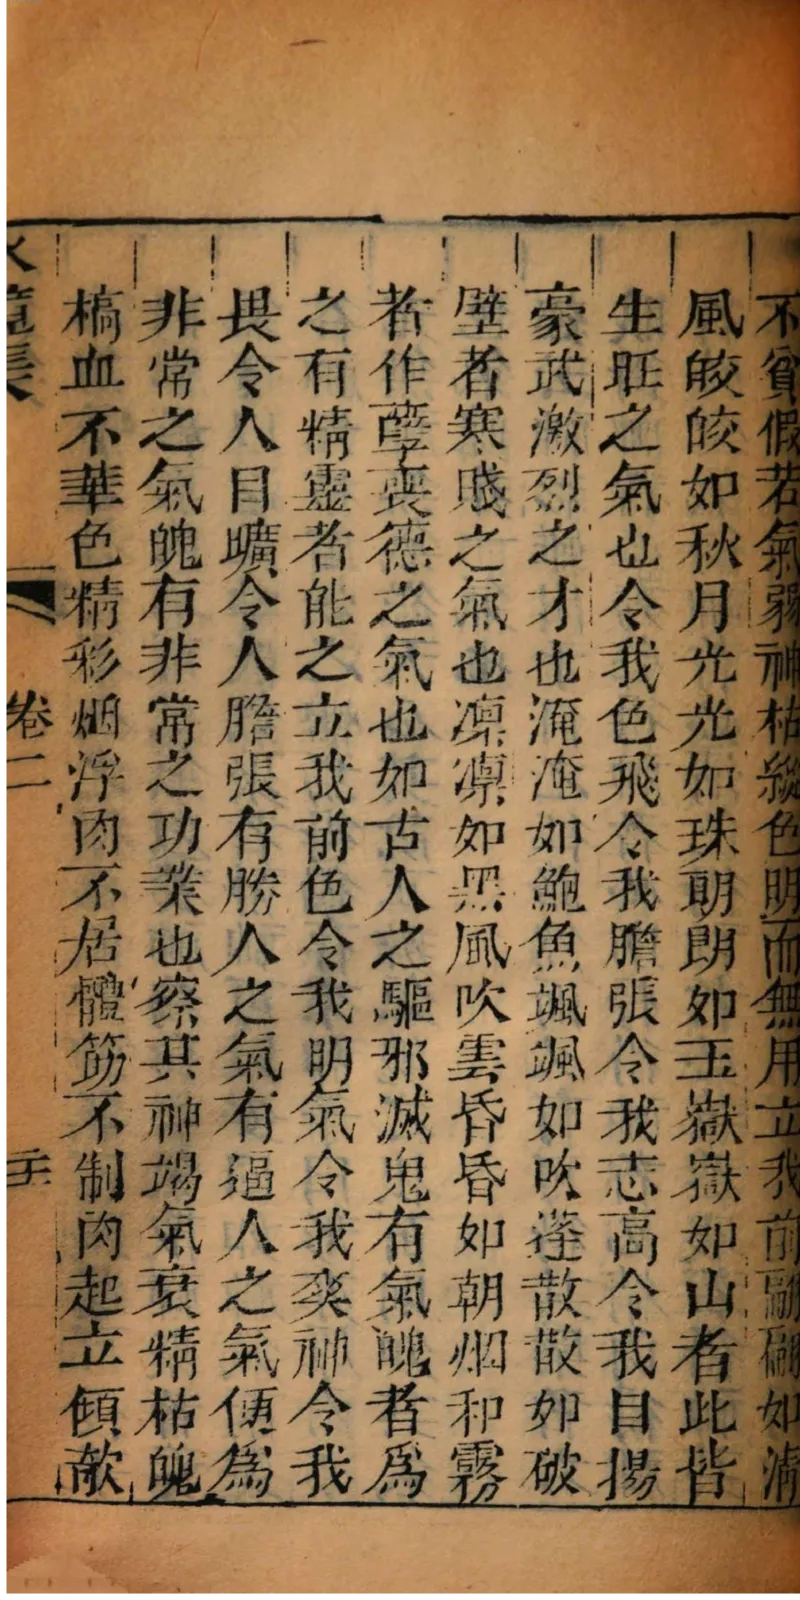 不貧假若氣弱神枯縱色明而無用立我前翩翩如清
風皎皎如秋月光光如珠朗朗如玉嶽嶽如山者此皆
生旺之氣也令我色飛令我膽張令我志高令我目揚
豪武激烈之才也淹淹如鮑魚颯颯如吹蓬散散如破
壁者寒賤之氣也凛凛如黑風吹雲昏昏如朝烟和霧
者作孽喪德之氣也如古人之驅邪滅鬼有氣魄者為
之有精靈者能之立我前色令我明氣令我爽神令我
畏令人目曠令人膽張有勝人之氣有逼人之氣便為
非常之氣魄有非常之功業也察其神竭氣衰精枯魄
槁血不華色精彩烟浮肉不居體筋不制肉起立傾欹
卷二